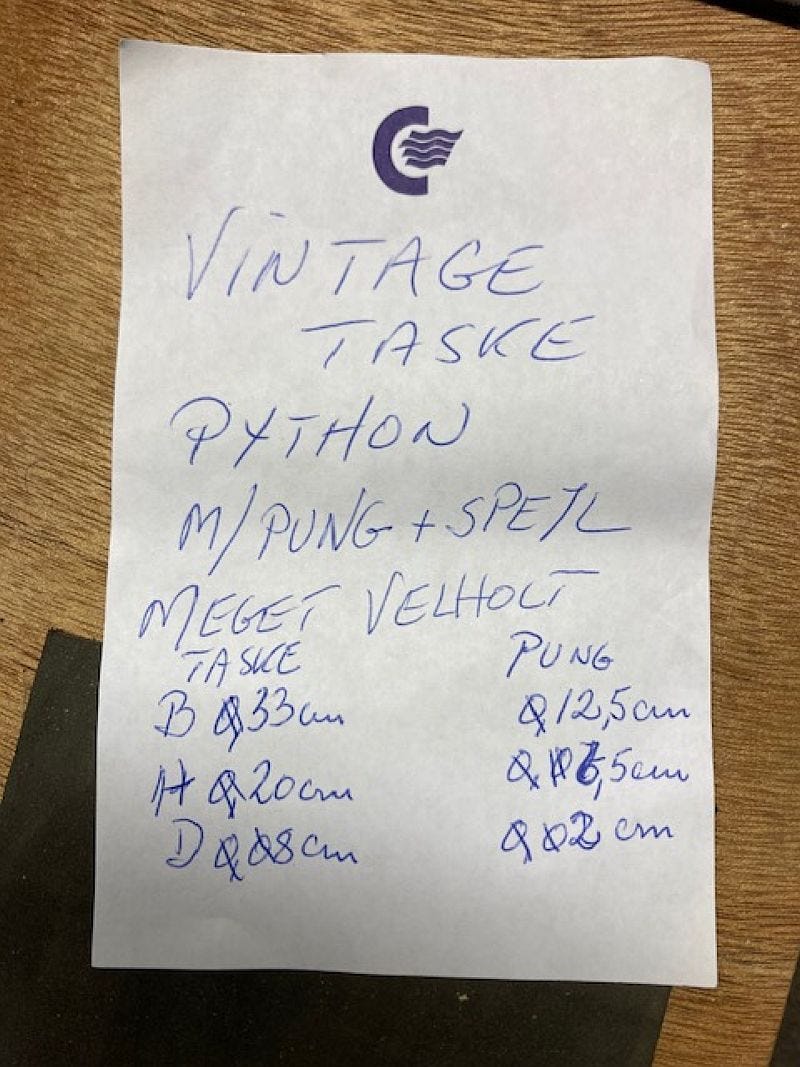 VINTAGE
TASKE
PYTHON
M/PUNG + SPEJL
MEGET VELHOLT
TASKE PUNG
B 33cm 12,5cm
H 20cm 5cm
D 8cm 2 cm